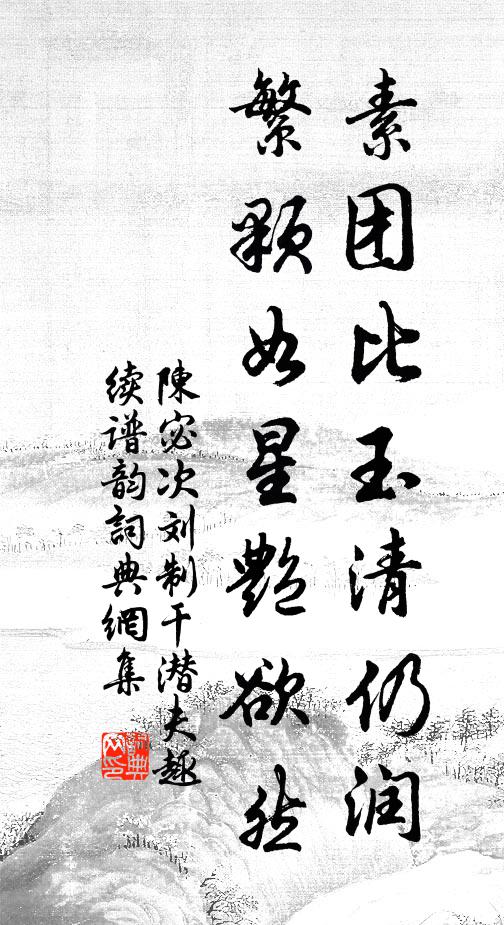 素团比玉清仍润
繁颗如星艳欲然
陳宓次刘制干潜夫趣
续谱韵詞典網集
詞典